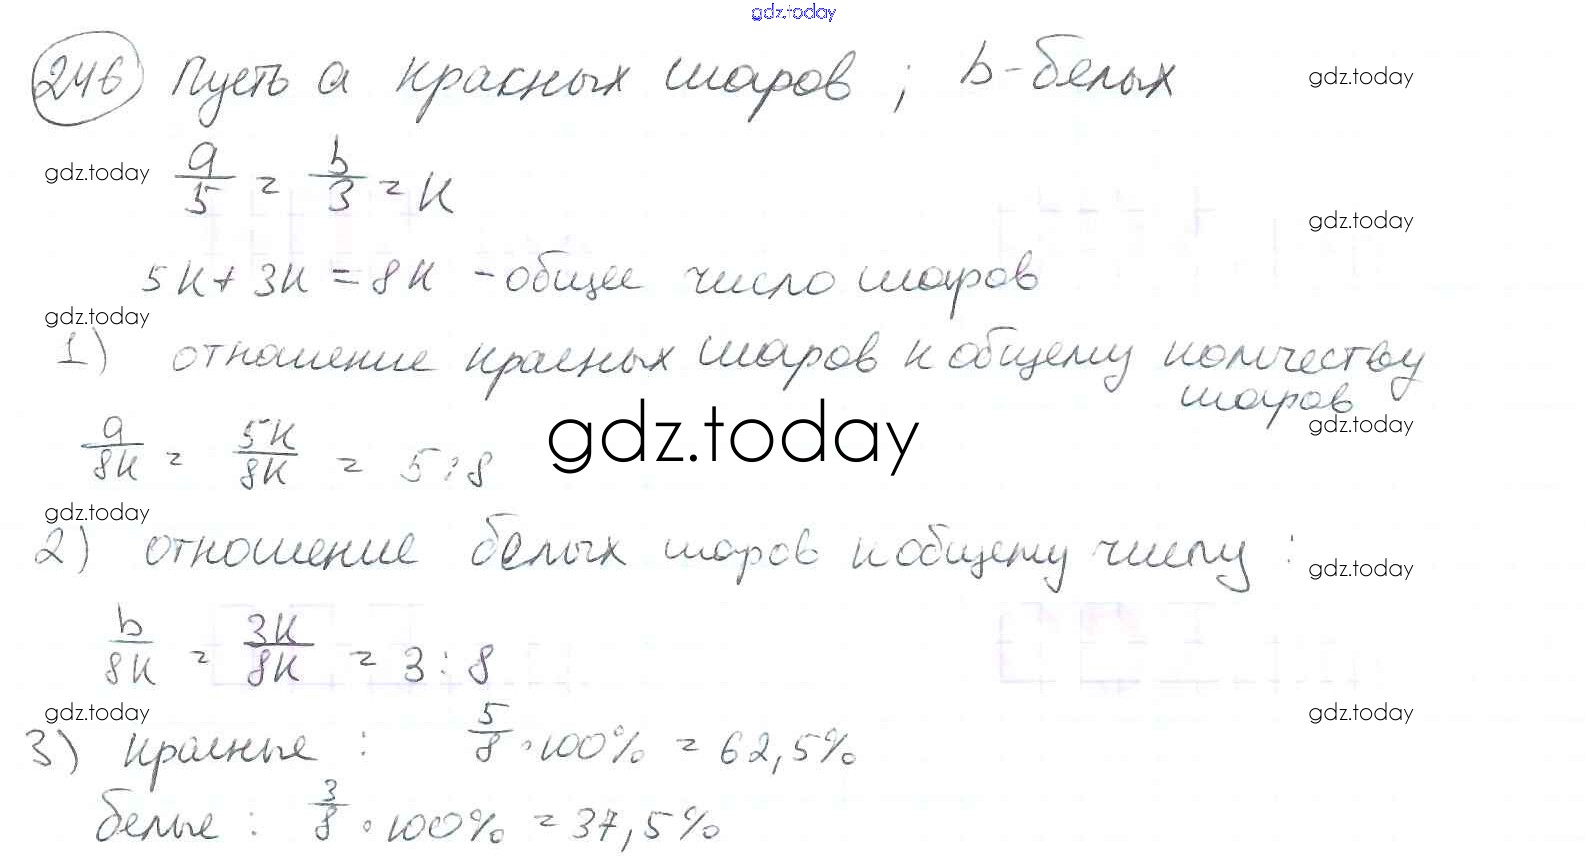 gdz.today
246 Пусть a красных шаров ; b - белых
gdz.today
a/5 = b/3 = к
gdz.today
gdz.today
5к + 3к = 8к - общее число шаров
gdz.today
1) отношение красных шаров к общему количеству
шаров
gdz.today
a/8к = 5к/8к = 5 : 8
gdz.today
gdz.today
2) отношение белых шаров к общему числу :
gdz.today
b/8к = 3к/8к = 3 : 8
gdz.today
gdz.today
3) красные : 5/8 · 100% = 62,5%
белые : 3/8 · 100% = 37,5%